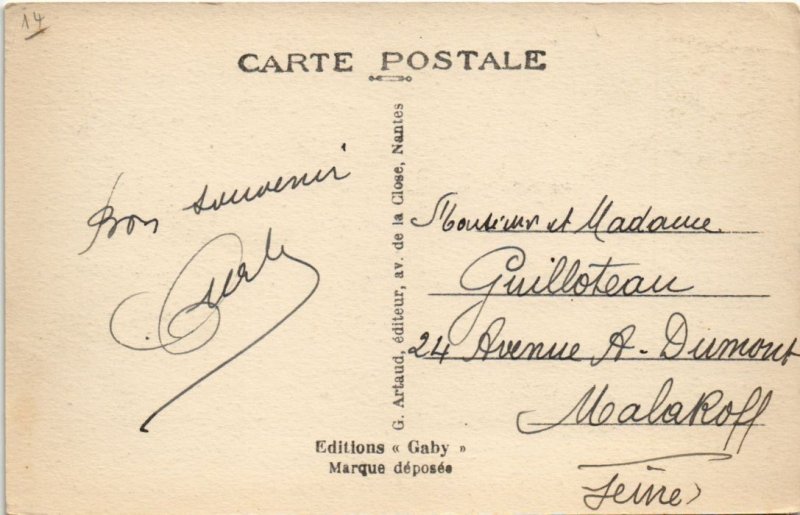 14
CARTE POSTALE
Bon souvenir
G. Artaud, éditeur, av. de la Close, Nantes
Monsieur et Madame
Guilloteau
24 Avenue A. Dumont
Malakoff
Seine
Editions « Gaby »
Marque déposée